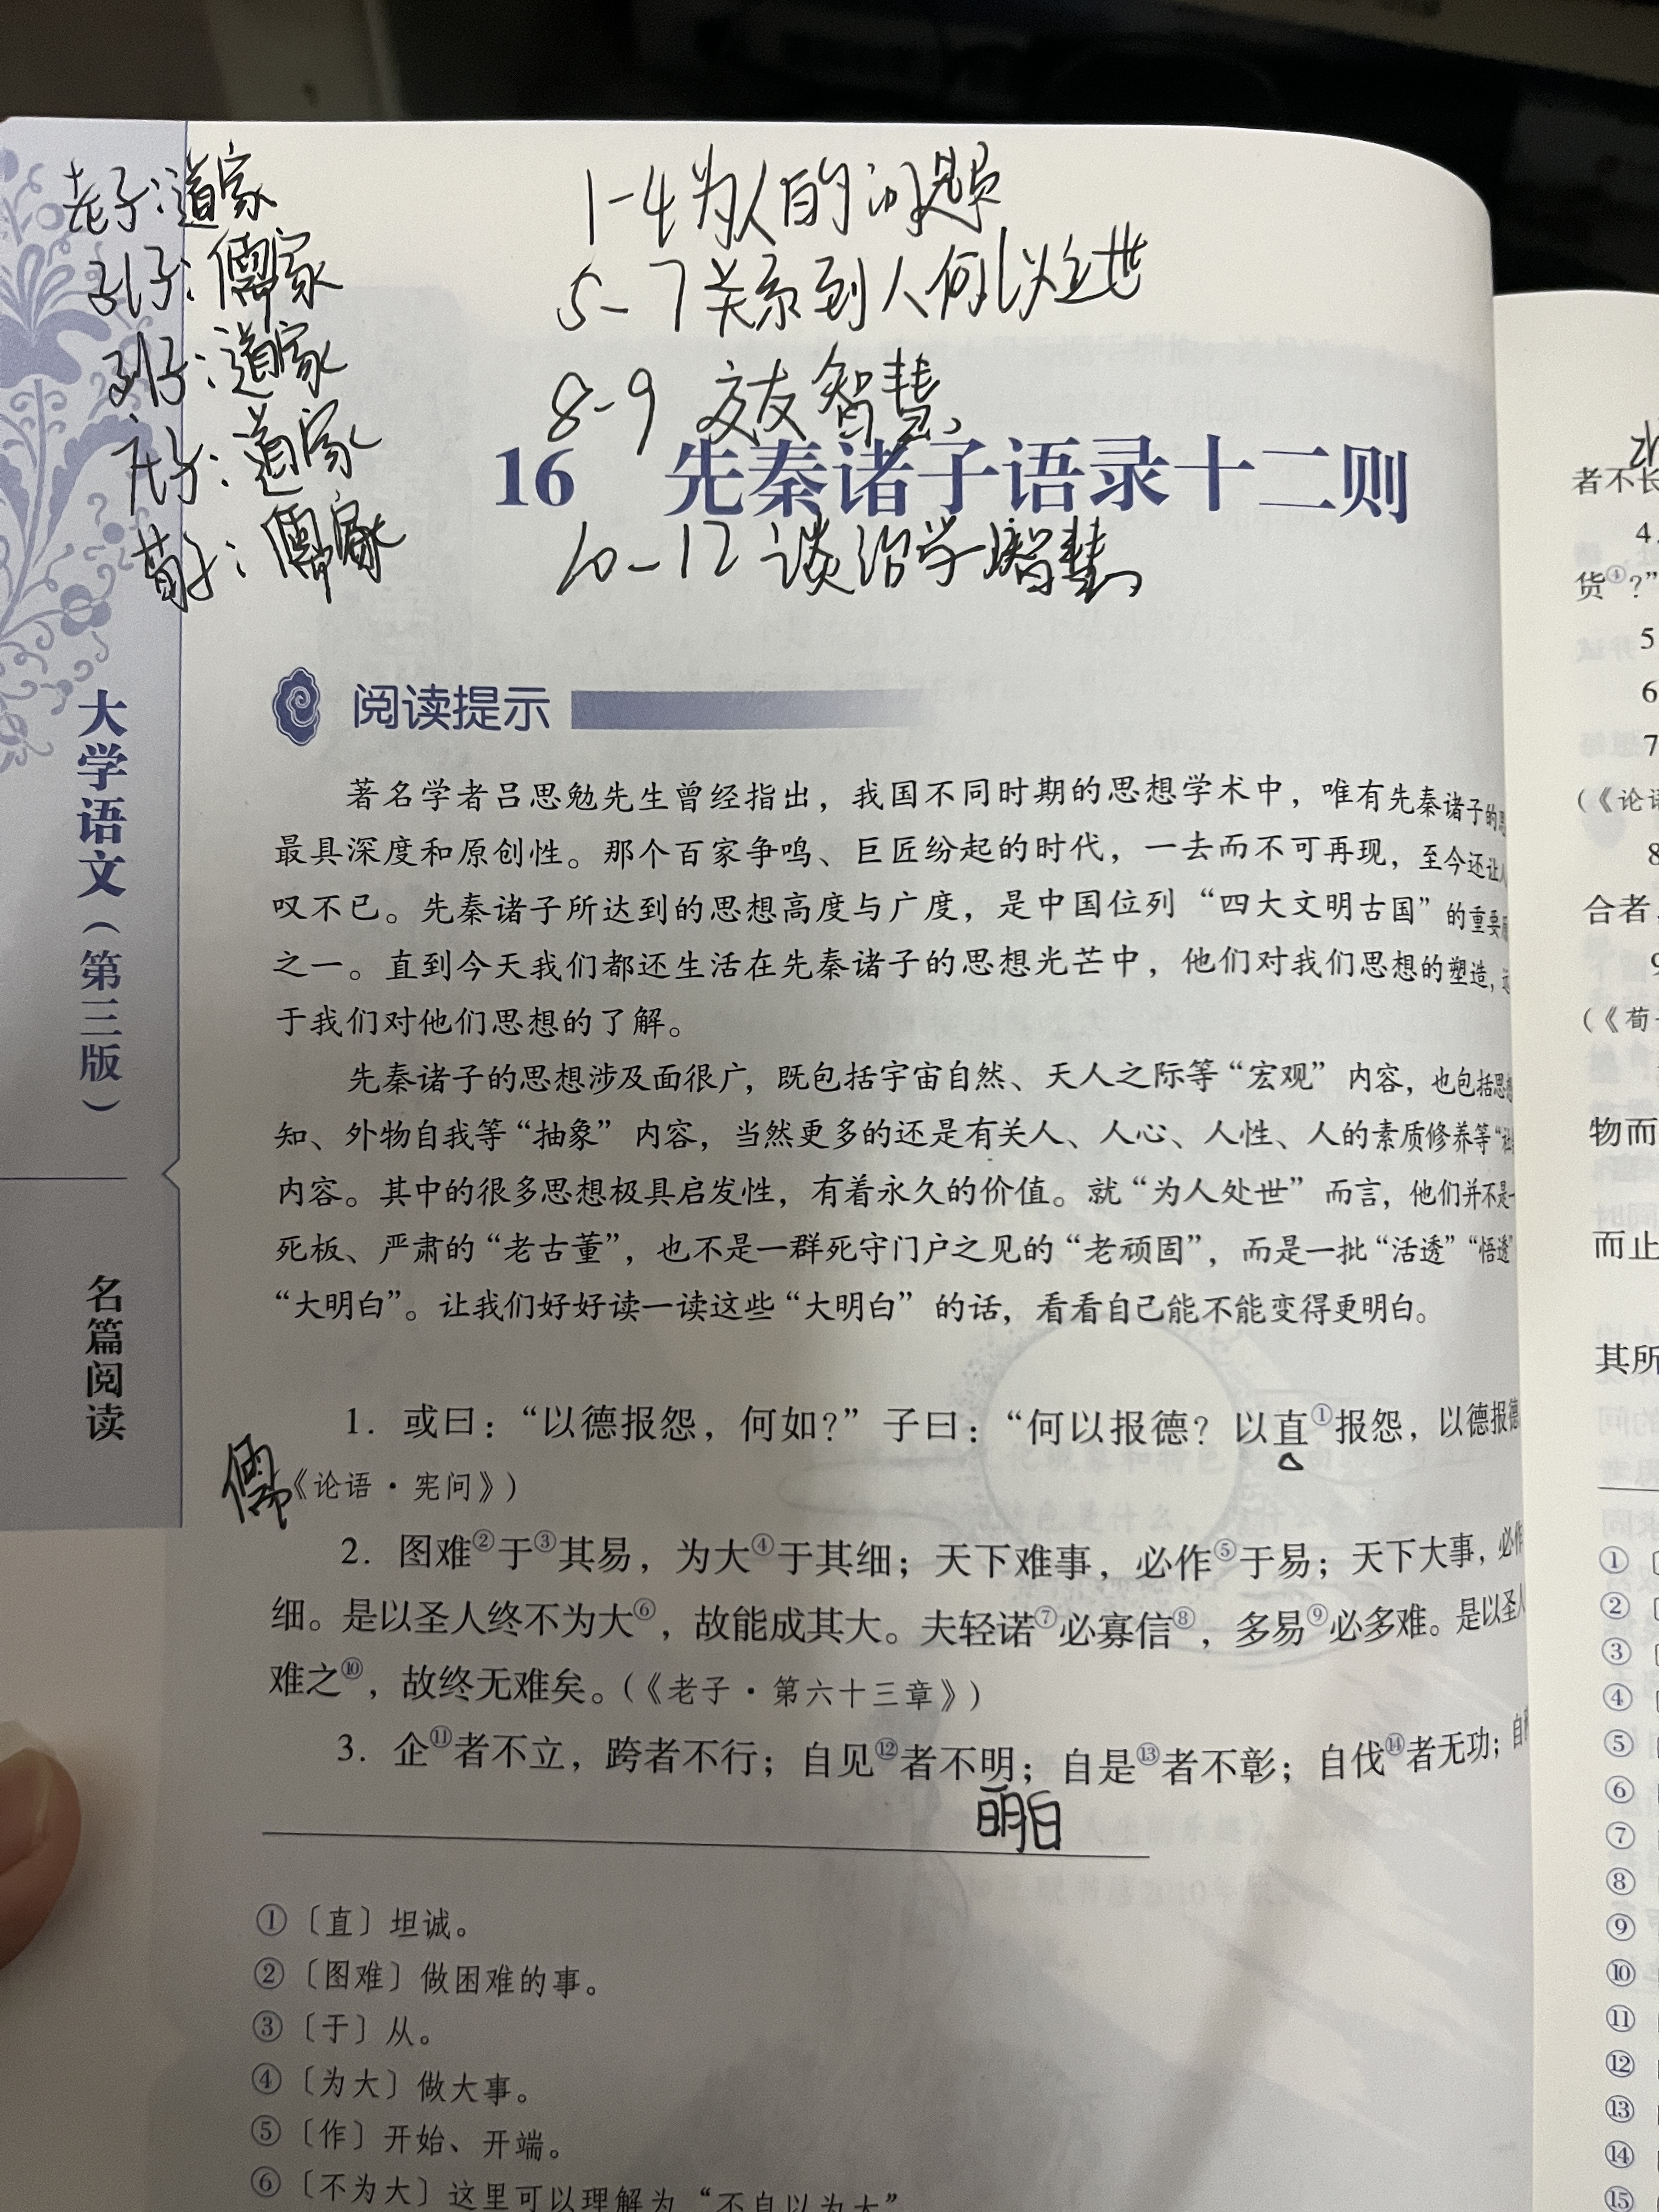 老子：道家
孔子：儒家
列子：道家
庄子：道家
荀子：儒家
1-4为人的问题
5-7关系到人何以立世
8-9 交友智慧
16 先秦诸子语录十二则
10-12 谈治学智慧
大学语文（第三版）
名篇阅读
阅读提示
著名学者吕思勉先生曾经指出，我国不同时期的思想学术中，唯有先秦诸子的
最具深度和原创性。那个百家争鸣、巨匠纷起的时代，一去而不可再现，至今还让
叹不已。先秦诸子所达到的思想高度与广度，是中国位列“四大文明古国”的重要
之一。直到今天我们都还生活在先秦诸子的思想光芒中，他们对我们思想的塑造，
于我们对他们思想的了解。
先秦诸子的思想涉及面很广，既包括宇宙自然、天人之际等“宏观”内容，也包括思
知、外物自我等“抽象”内容，当然更多的还是有关人、人心、人性、人的素质修养等“
内容。其中的很多思想极具启发性，有着永久的价值。就“为人处世”而言，他们并不是
死板、严肃的“老古董”，也不是一群死守门户之见的“老顽固”，而是一批“活透”“悟透”
“大明白”。让我们好好读一读这些“大明白”的话，看看自己能不能变得更明白。
1. 或曰：“以德报怨，何如？”子曰：“何以报德？以直①报怨，以德报德
儒
《论语·宪问》）
2. 图难②于③其易，为大④于其细；天下难事，必作⑤于易；天下大事，必作
细。是以圣人终不为大⑥，故能成其大。夫轻诺⑦必寡信⑧，多易⑨必多难。是以圣人
难之⑩，故终无难矣。（《老子·第六十三章》）
3. 企⑪者不立，跨者不行；自见⑫者不明；自是⑬者不彰；自伐⑭者无功；自
明白
①〔直〕坦诚。
②〔图难〕做困难的事。
③〔于〕从。
④〔为大〕做大事。
⑤〔作〕开始、开端。
⑥〔不为大〕这里可以理解为“不自以为大”
者不长
4.
货④？”
5
6
7
（《论语
8
合者
9
（《荀
物而
而止
其所
①
②
③
④
⑤
⑥
⑦
⑧
⑨
⑩
⑪
⑫
⑬
⑭
⑮